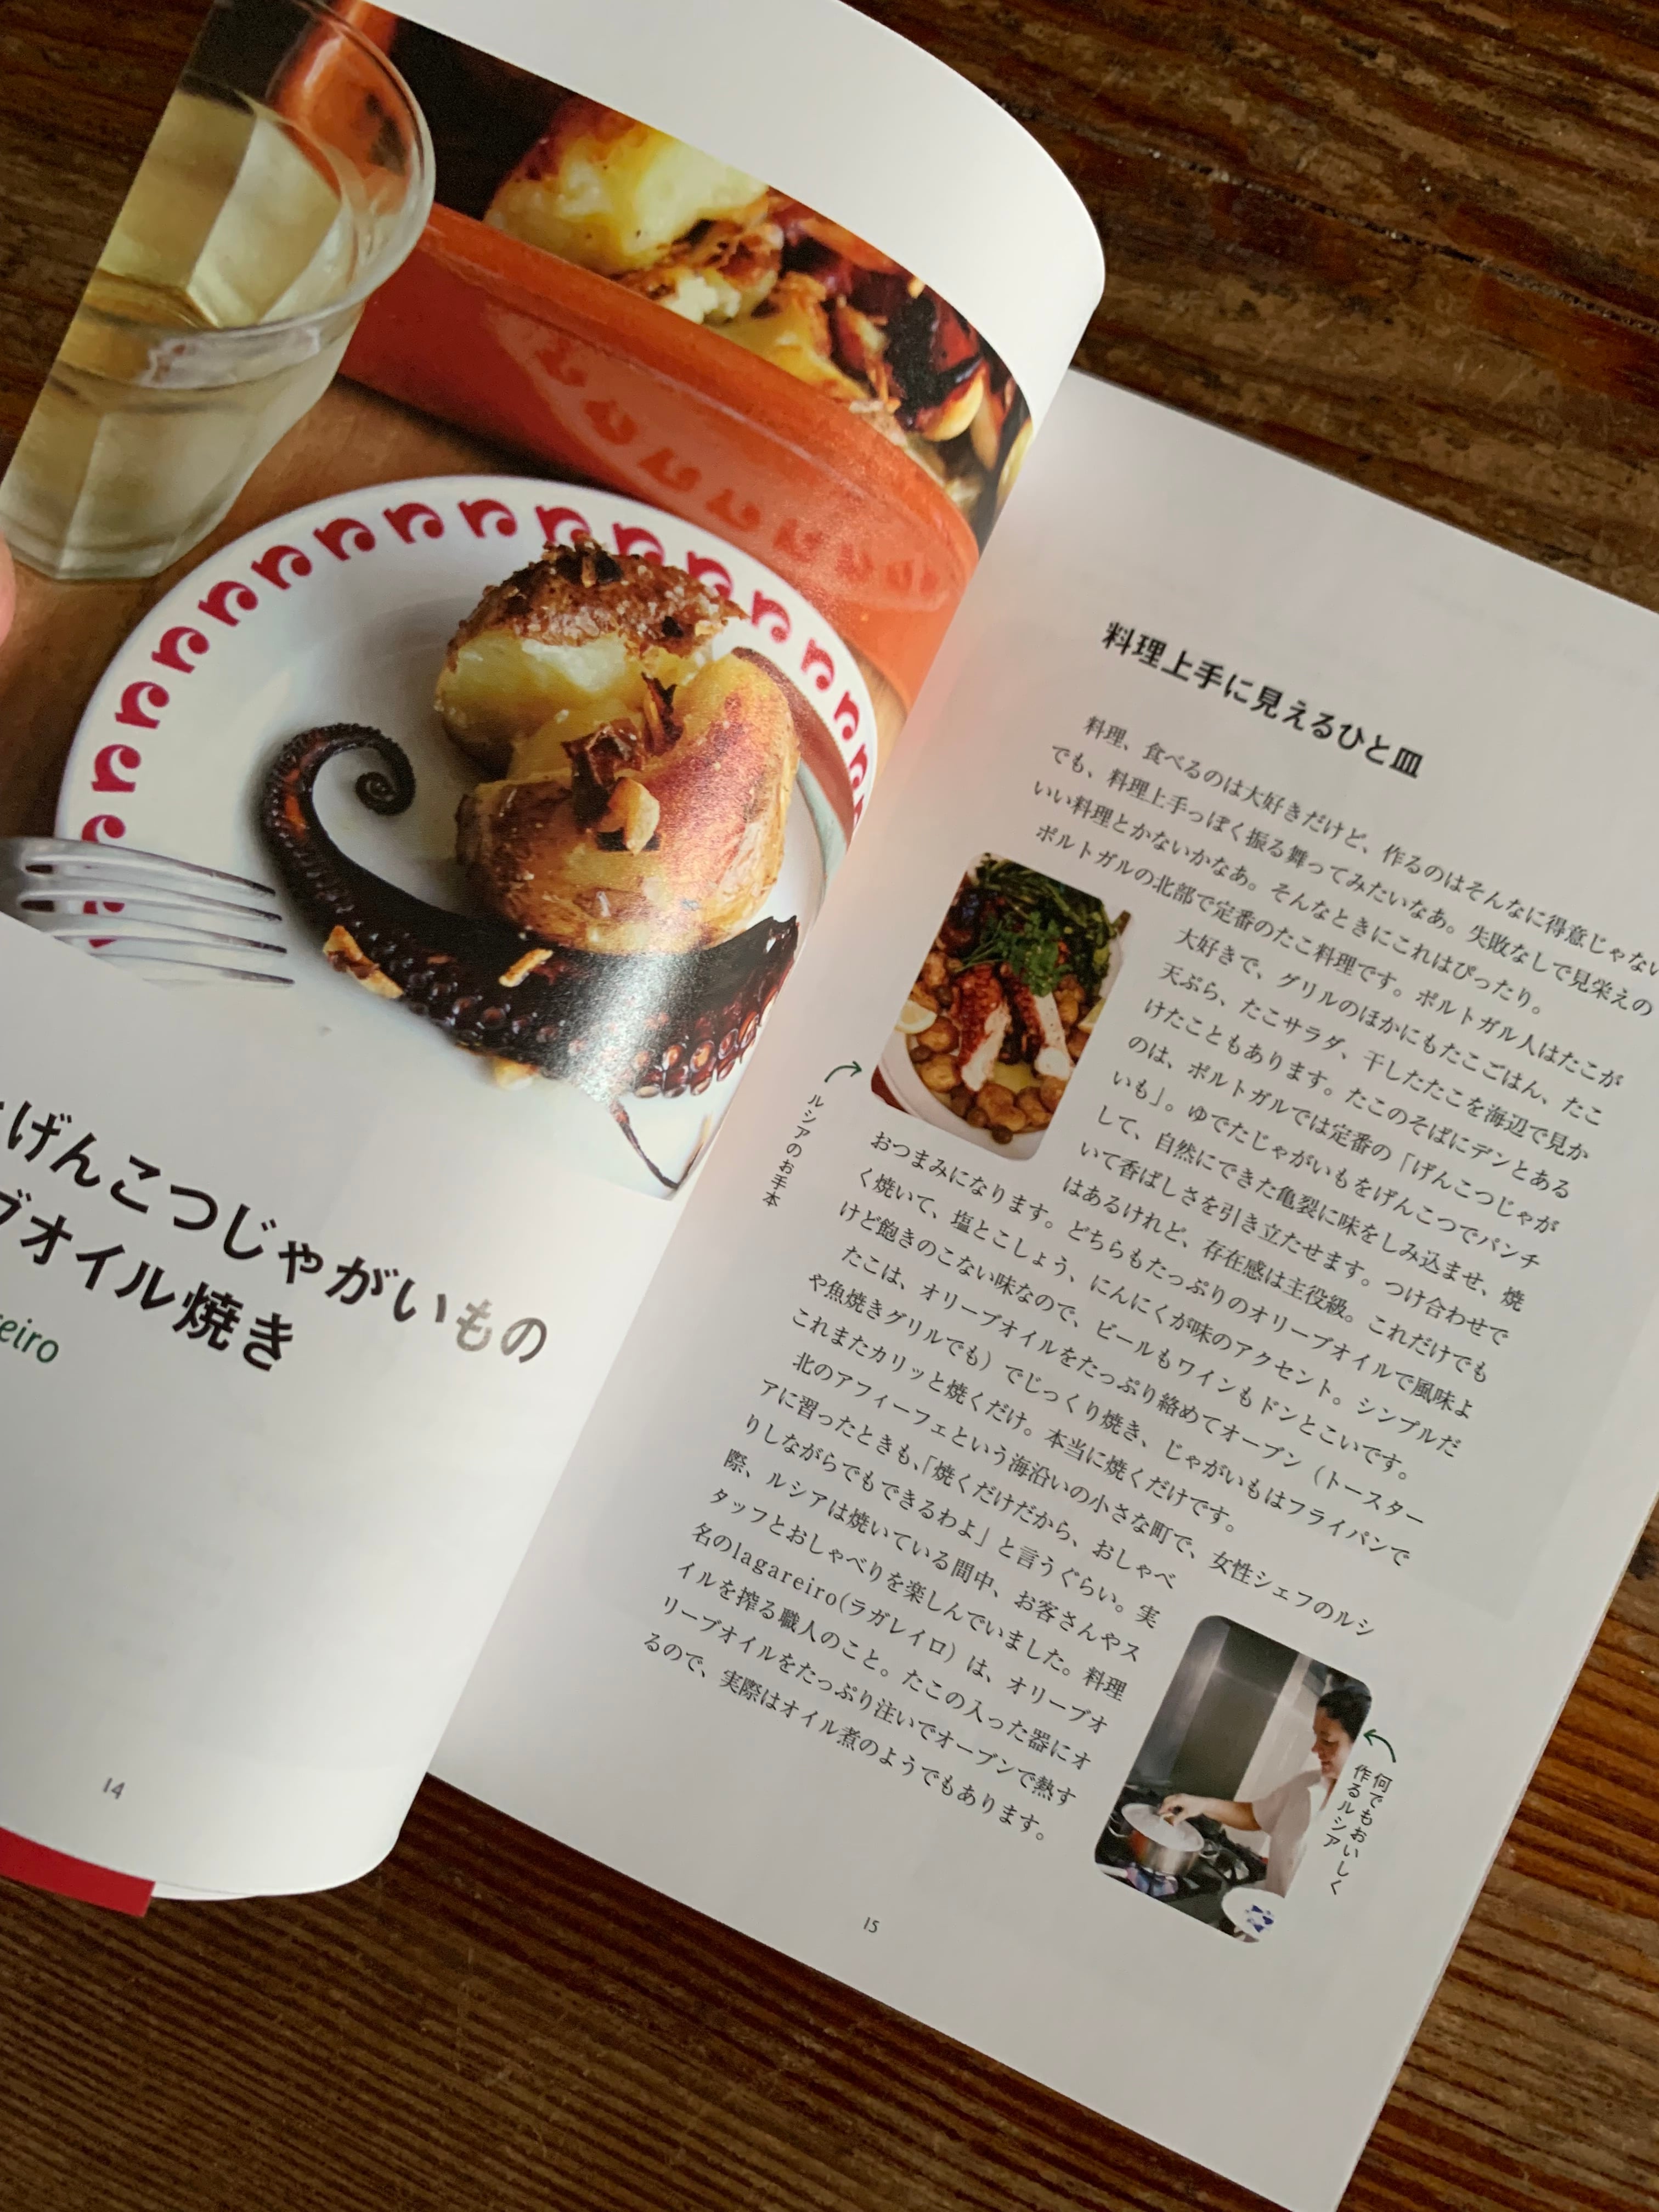 げんこつじゃがいもの
ブオイル焼き
eiro
14
料理上手に見えるひと皿
料理、食べるのは大好きだけど、作るのはそんなに得意じゃない
でも、料理上手っぽく振る舞ってみたいなあ。失敗なしで見栄えの
いい料理とかないかなあ。そんなときにこれはぴったり。
ポルトガルの北部で定番のたこ料理です。ポルトガル人はたこが
大好きで、グリルのほかにもたこごはん、たこ
天ぷら、たこサラダ、干したたこを海辺で見か
けたこともあります。たこのそばにデンとある
のは、ポルトガルでは定番の「げんこつじゃが
いも」。ゆでたじゃがいもをげんこつでパンチ
して、自然にできた亀裂に味をしみ込ませ、焼
いて香ばしさを引き立たせます。つけ合わせで
はあるけれど、存在感は主役級。これだけでも
おつまみになります。どちらもたっぷりのオリーブオイルで風味よ
く焼いて、塩とこしょう、にんにくが味のアクセント。シンプルだ
けど飽きのこない味なので、ビールもワインもドンとこいです。
たこは、オリーブオイルをたっぷり絡めてオーブン（トースター
や魚焼きグリルでも）でじっくり焼き、じゃがいもはフライパンで
これまたカリッと焼くだけ。本当に焼くだけです。
北のアフィーフェという海沿いの小さな町で、女性シェフのルシ
アに習ったときも、「焼くだけだから、おしゃべ
りしながらでもできるわよ」と言うぐらい。実
際、ルシアは焼いている間中、お客さんやス
タッフとおしゃべりを楽しんでいました。料理
名のlagareiro(ラガレイロ）は、オリーブオ
イルを搾る職人のこと。たこの入った器にオ
リーブオイルをたっぷり注いでオーブンで熱す
るので、実際はオイル煮のようでもあります。
ルシアのお手本
何でもおいしく
作るルシア
15